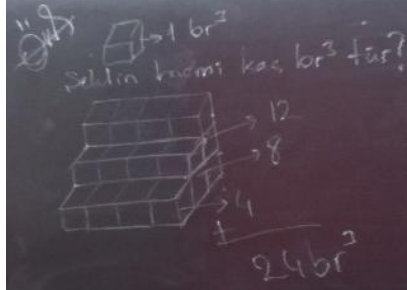 "Örn"
→1 br³
Şeklin hacmi kaç br³ tür?
→ 12
→ 8
→ 4
+
24br³